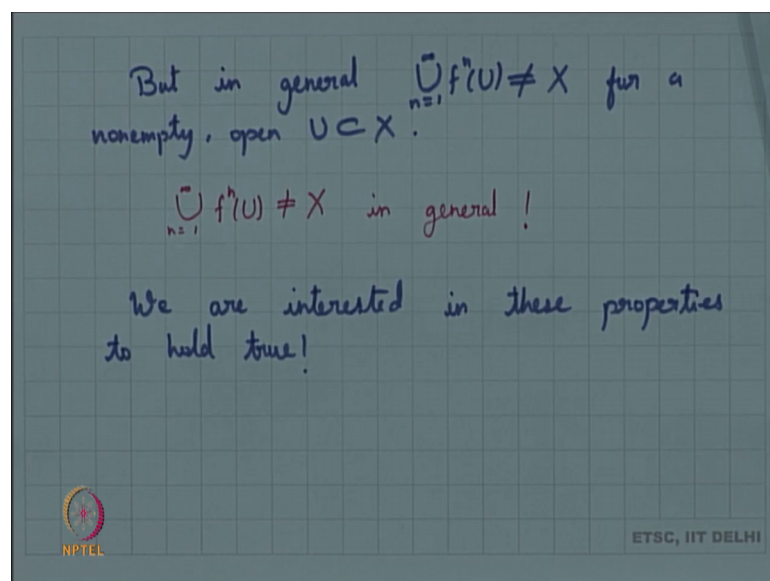 But in general ∞⋃n=1 fⁿ(U) ≠ X for a
nonempty, open U ⊂ X.
∞⋃n=1 fⁿ(U) ≠ X in general!
We are interested in these properties
to hold true!
NPTEL
ETSC, IIT DELHI